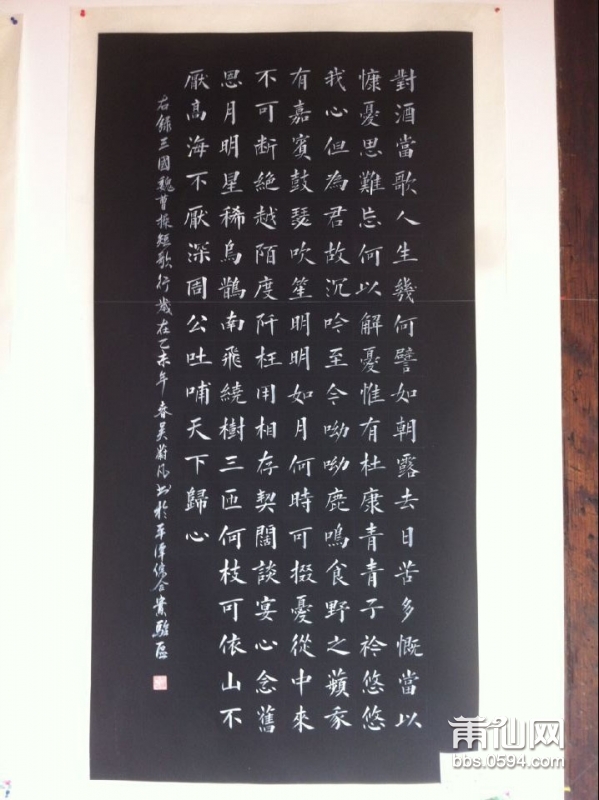 對酒當歌人生幾何譬如朝露去日苦多慨當以
慷憂思難忘何以解憂惟有杜康青青子衿悠悠
我心但為君故沉吟至今呦呦鹿鳴食野之蘋我
有嘉賓鼓瑟吹笙明明如月何時可掇憂從中來
不可断絕越陌度阡枉用相存契闊談宴心念舊
恩月明星稀烏鵲南飛繞樹三匝何枝可依山不
厭高海不厭深周公吐哺天下歸心
右錄三國魏曹操短歌行歲在乙未年春吴蔚风书於平潭综合實驗區
莆仙网
bbs.0594.com